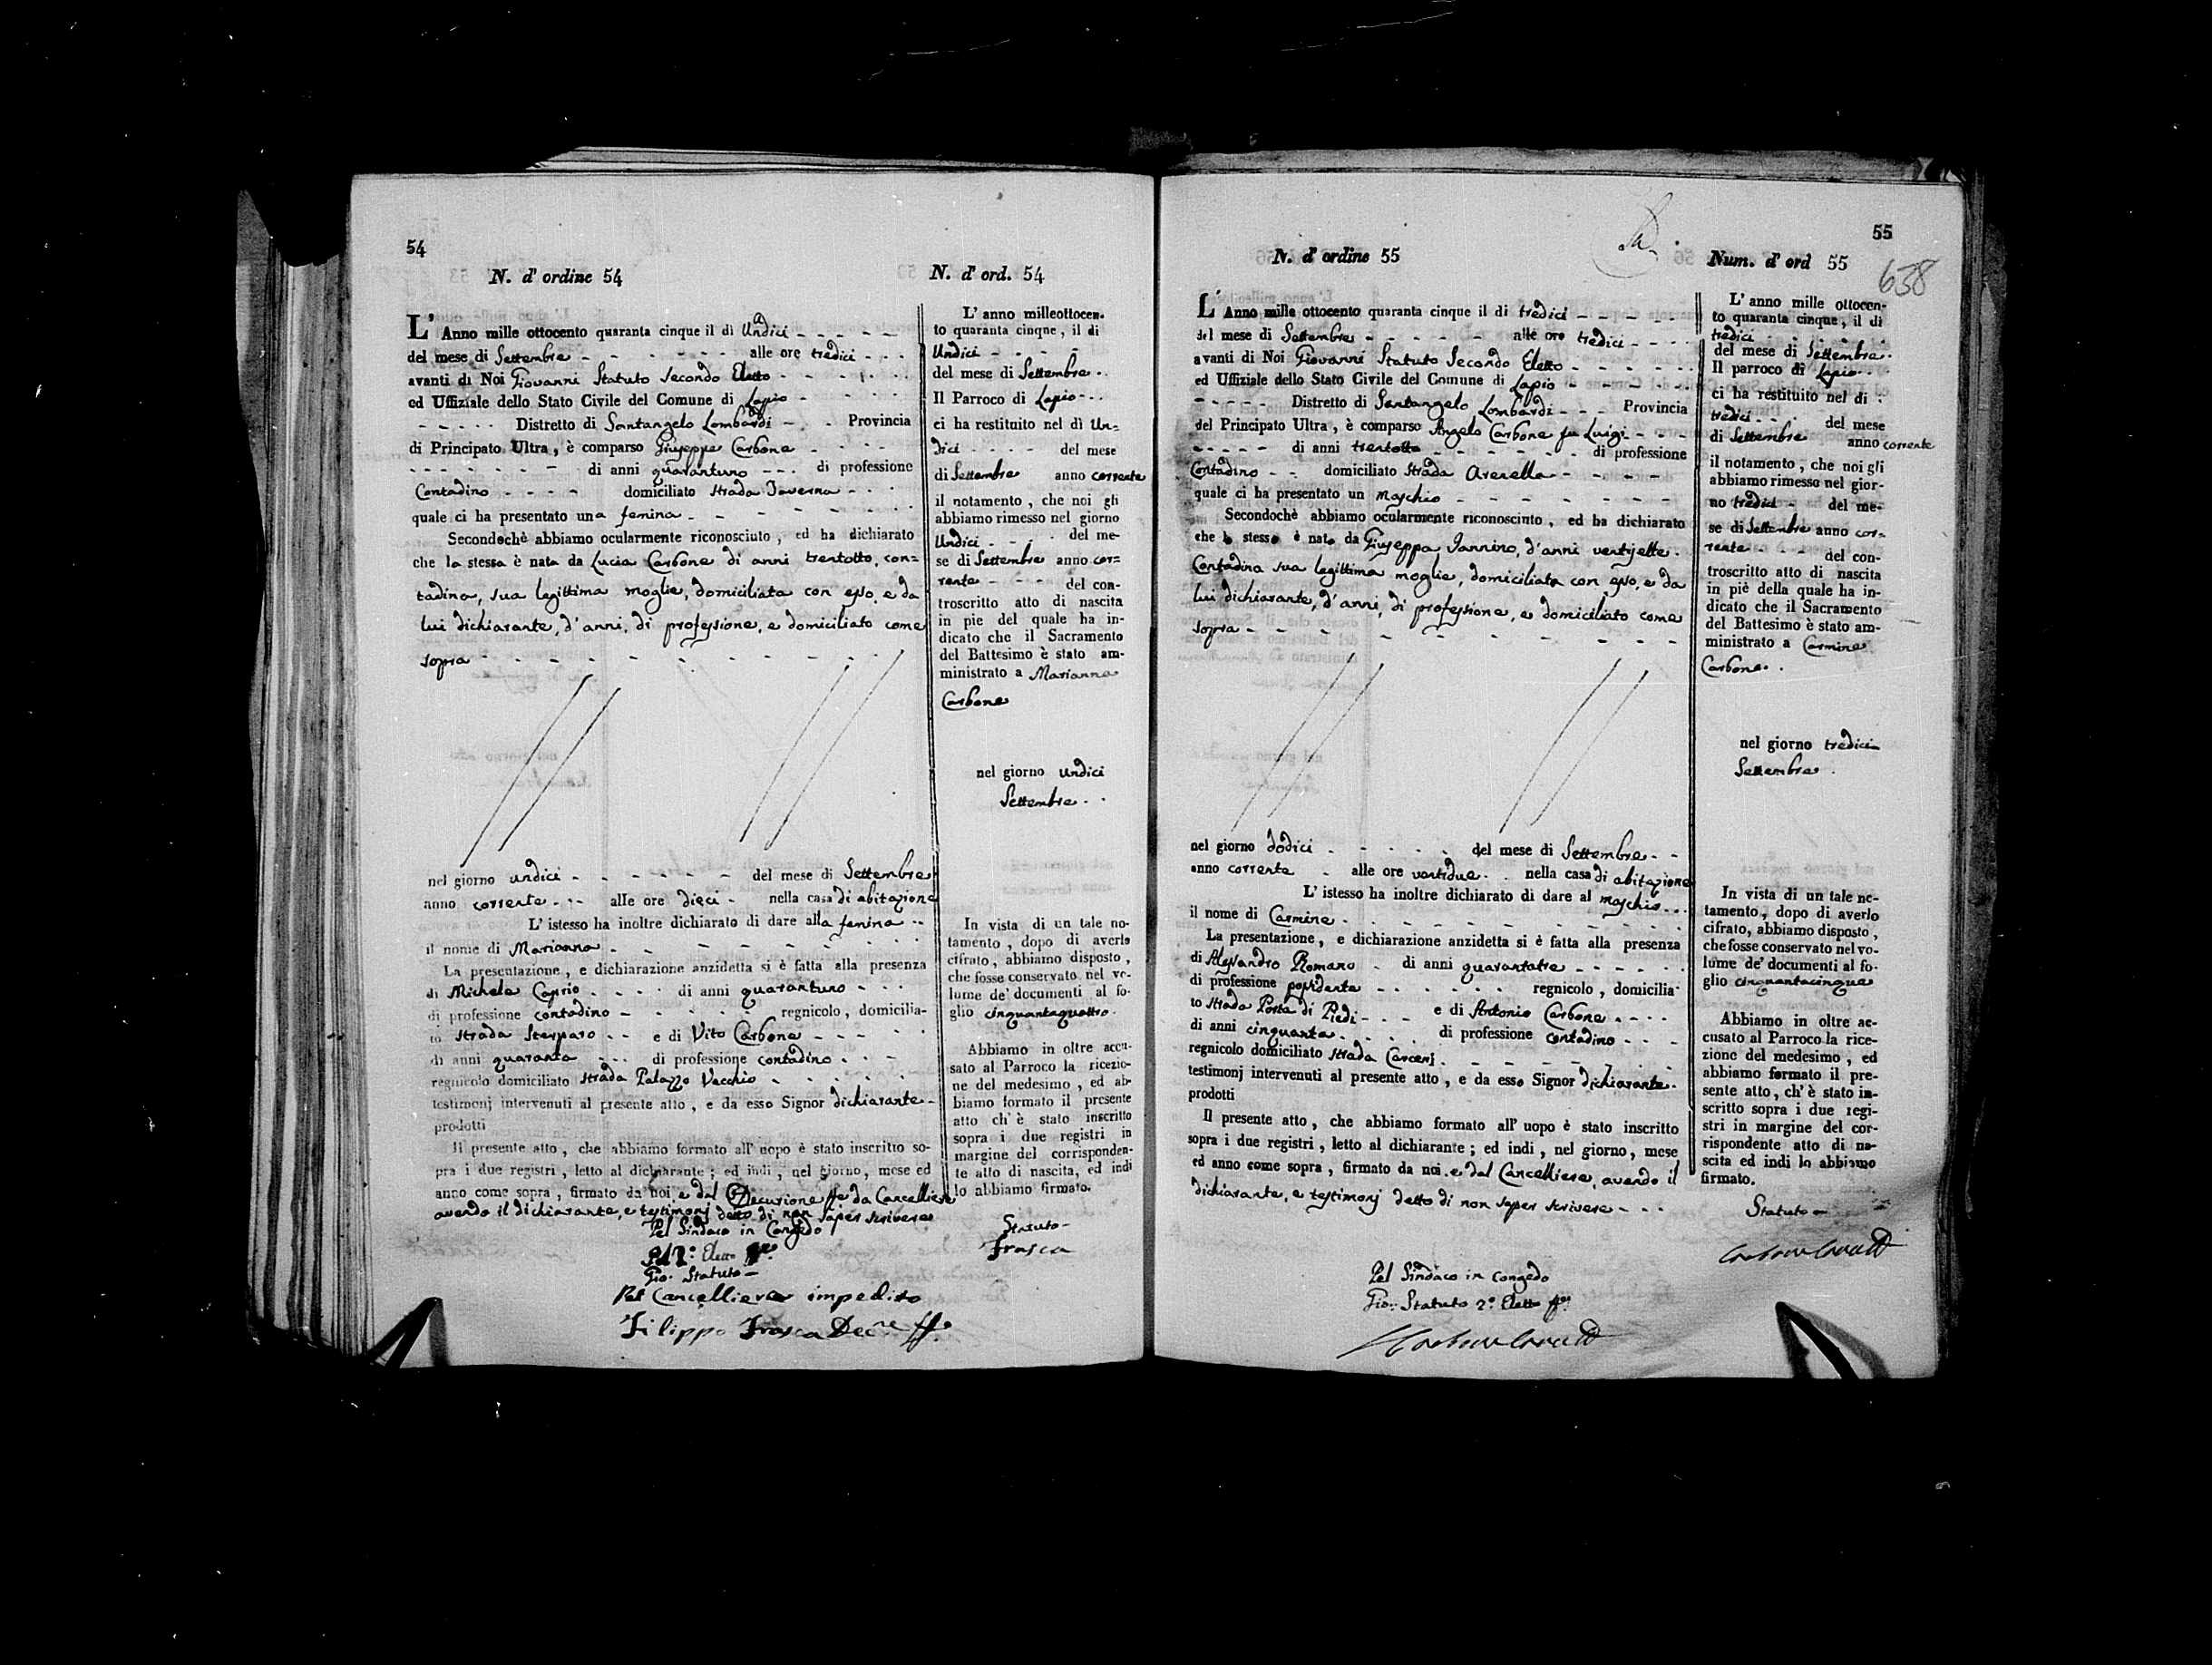 54
N. d' ordine 54
L' Anno mille ottocento quaranta cinque il dì Undici
del mese di Settembre alle ore tredici
avanti di Noi Giovanni Statuto Secondo Eletto
ed Uffiziale dello Stato Civile del Comune di Lapio
Distretto di Santangelo Lombardi Provincia
di Principato Ultra, è comparso Giuseppe Carbone
di anni quarantuno di professione
Contadino domiciliato Strada Taverna
quale ci ha presentato una femina
Secondochè abbiamo ocularmente riconosciuto, ed ha dichiarato
che la stessa è nata da Lucia Carbone di anni trentotto, con=
tadina, sua legittima moglie, domiciliata con esso, e da
lui dichiarante, d'anni, di professione, e domiciliato come
sopra
nel giorno undici del mese di Settembre
anno corrente alle ore dieci nella casa di abitazione
L' istesso ha inoltre dichiarato di dare alla femina
il nome di Marianna
La presentazione, e dichiarazione anzidetta si è fatta alla presenza
di Michele Caprio di anni quarantuno
di professione contadino regnicolo, domicilia-
to Strada Sterparo e di Vito Carbone
di anni quaranta di professione contadino
regnicolo domiciliato Strada Palazzo Vecchio
testimonj intervenuti al presente atto, e da esso Signor dichiarante
prodotti
Il presente atto, che abbiamo formato all' uopo è stato inscritto so-
pra i due registri, letto al dichiarante; ed indi, nel giorno, mese ed
anno come sopra, firmato da noi e dal Decurione ff. da Cancelliere
avendo il dichiarante, e testimonj detto di non saper scrivere
Pel Sindaco in Congedo
Il 2.° Eletto ff.
Gio. Statuto
Pel Cancelliere impedito
Filippo Frasca Dec.ne ff.
N. d' ord. 54
L' anno milleottocen-
to quaranta cinque, il di
Undici
del mese di Settembre
Il Parroco di Lapio
ci ha restituito nel dì Un=
dici del mese
di Settembre anno corrente
il notamento, che noi gli
abbiamo rimesso nel giorno
Undici del me-
se di Settembre anno cor=
rente del con-
troscritto atto di nascita
in pie del quale ha in-
dicato che il Sacramento
del Battesimo è stato am-
ministrato a Marianna
Carbone
nel giorno undici
Settembre
In vista di un tale no-
tamento, dopo di averlo
cifrato, abbiamo disposto,
che fosse conservato nel vo-
lume de' documenti al fo-
glio cinquantaquattro
Abbiamo in oltre accu-
sato al Parroco la ricezio-
ne del medesimo, ed ab-
biamo formato il presente
atto ch' è stato inscritto
sopra i due registri in
margine del corrisponden-
te atto di nascita, ed indi
lo abbiamo firmato.
Statuto
Frasca
55
638
N. d' ordine 55
L' Anno mille ottocento quaranta cinque il di tredici
del mese di Settembre alle ore tredici
avanti di Noi Giovanni Statuto Secondo Eletto
ed Uffiziale dello Stato Civile del Comune di Lapio
Distretto di Santangelo Lombardi Provincia
del Principato Ultra, è comparso Angelo Carbone fu Luigi
di anni trentotto di professione
Contadino domiciliato Strada Arenella
quale ci ha presentato un maschio
Secondochè abbiamo ocularmente riconosciuto, ed ha dichiarato
che lo stesso è nato da Giuseppa Iannino, d'anni ventisette
Contadina sua legittima moglie, domiciliata con esso, e da
lui dichiarante, d'anni, di professione, e domiciliato come
sopra
nel giorno dodici del mese di Settembre
anno corrente alle ore ventidue nella casa di abitazione
L' istesso ha inoltre dichiarato di dare al maschio
il nome di Carmine
La presentazione, e dichiarazione anzidetta si è fatta alla presenza
di Alessandro Romano di anni quarantatre
di professione possidente regnicolo, domicilia-
to Strada Porta di Piedi e di Antonio Carbone
di anni cinquanta di professione contadino
regnicolo domiciliato Strada Carceri
testimonj intervenuti al presente atto, e da esso Signor dichiarante
prodotti
Il presente atto, che abbiamo formato all' uopo è stato inscritto
sopra i due registri, letto al dichiarante; ed indi, nel giorno, mese
ed anno come sopra, firmato da noi e dal Cancelliere, avendo il
dichiarante, e testimonj detto di non saper scrivere
Pel Sindaco in congedo
Gio: Statuto 2.° Eletto ff.
Num. d' ord 55
L' anno mille ottocen-
to quaranta cinque, il di
tredici
del mese di Settembre
Il parroco di Lapio
ci ha restituito nel di
tredici del mese
di Settembre anno corrente
il notamento, che noi gli
abbiamo rimesso nel gior-
no tredici del me-
se di Settembre anno cor=
rente del con-
troscritto atto di nascita
in piè della quale ha in-
dicato che il Sacramento
del Battesimo è stato am-
ministrato a Carmine
Carbone
nel giorno tredici
Settembre
In vista di un tale no-
tamento, dopo di averlo
cifrato, abbiamo disposto,
che fosse conservato nel vo-
lume de' documenti al fo-
glio cinquantacinque
Abbiamo in oltre ac-
cusato al Parroco la rice-
zione del medesimo, ed
abbiamo formato il pre-
sente atto, ch' è stato in-
scritto sopra i due regi-
stri in margine del cor-
rispondente atto di na-
scita ed indi lo abbiamo
firmato.
Statuto